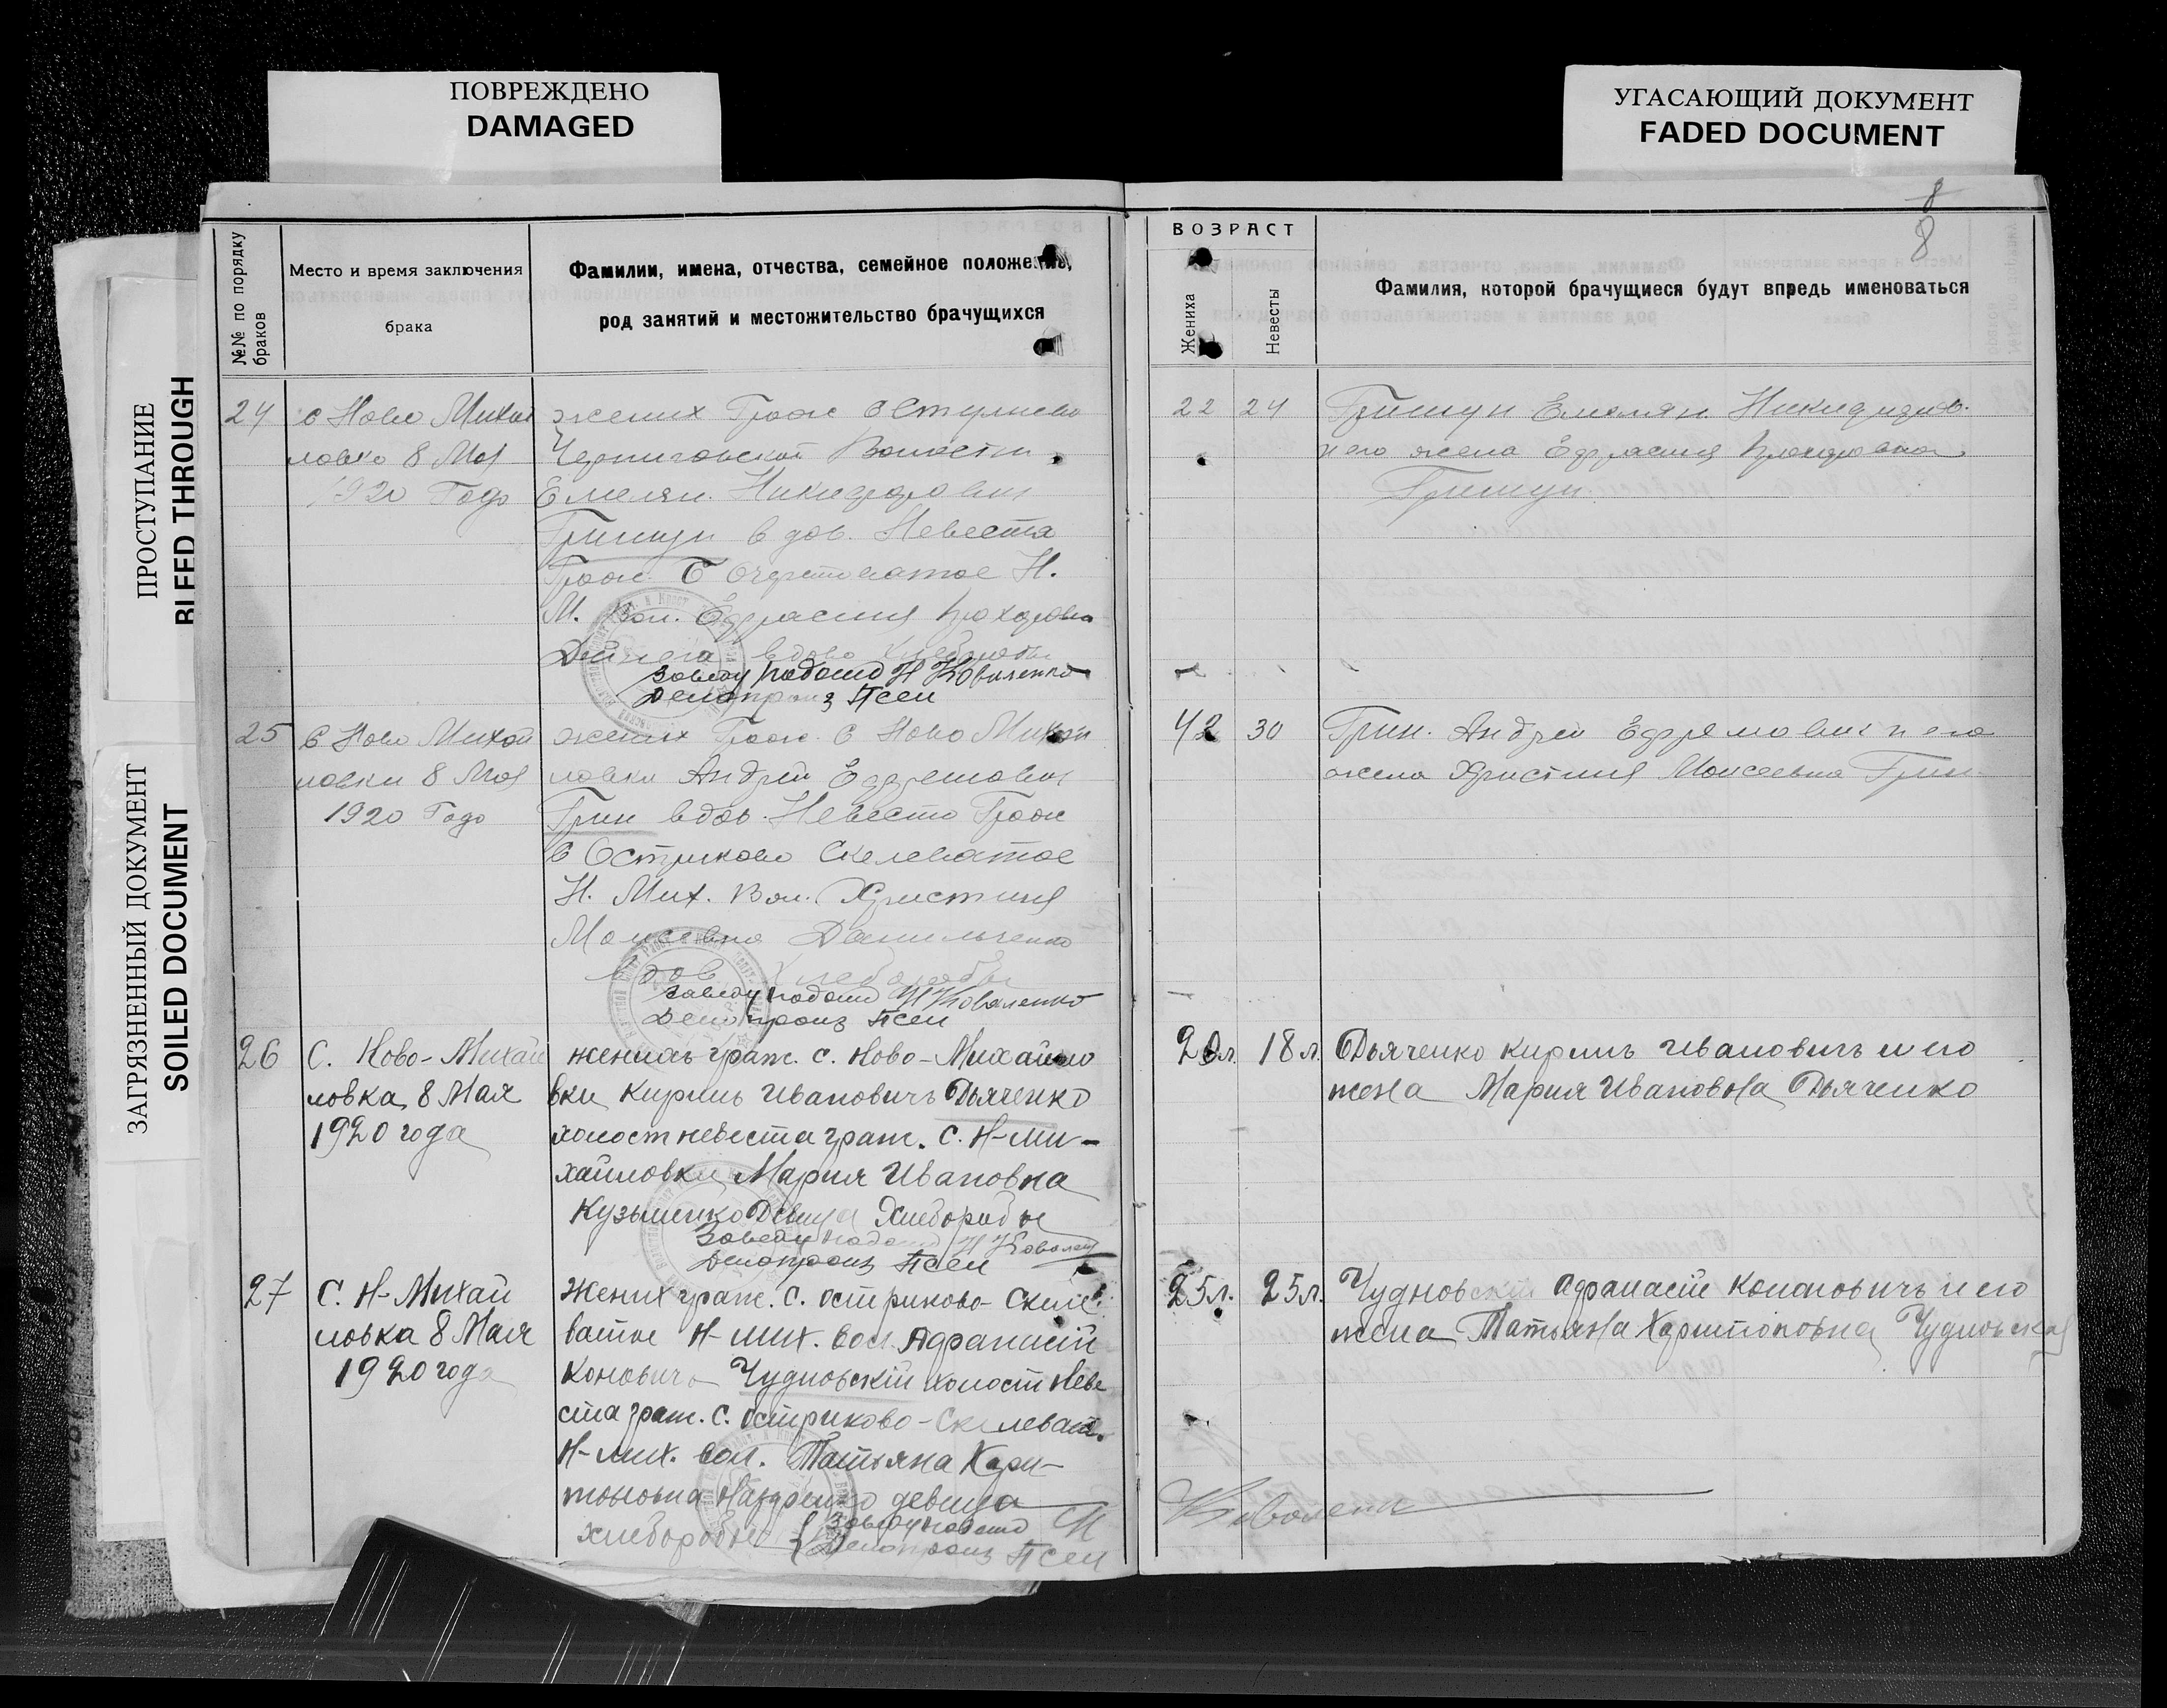 ПОВРЕЖДЕНО
DAMAGED
УГАСАЮЩИЙ ДОКУМЕНТ
FADED DOCUMENT
ПРОСТУПАНИЕ
BLEED THROUGH
ЗАГРЯЗНЕННЫЙ ДОКУМЕНТ
SOILED DOCUMENT
8
8
№№ по порядку
браков
Место и время заключения
брака
Фамилии, имена, отчества, семейное положение,
род занятий и местожительство брачущихся
ВОЗРАСТ
Жениха
Невесты
Фамилия, которой брачущиеся будут впредь именоваться
24
с Ново Михай
ловка 8 Мая
1920 Года
жених Граж с
Черниговской Волости
Емелян Никифорович
Гришун вдов. Невеста
Граж. С
Н.
М. Вол. Ефрасиния Прохоровна
вдова хлеборобы
Заведу подотд Н Коваленко
Делопроиз Псел
22 24
Гришун Емелян
и его жена Ефрасиния Прохоровна
Гришун
25
С Ново Михай
ловки 8 Мая
1920 Года
жених Граж. С Ново Михай
ловки Андрей Ефремович
Грин вдов. Невеста Граж
С Остриково Скелеватое
Н. Мих. Вол. Христиния
Моисеевна Данильченко
вдов хлеборобы
Заведу подотд Н Коваленко
Делопроиз Псел
42 30
Грин. Андрей Ефремович и его
жена Христиния Моисеевна Грин
26
С. Ново-Михай
ловка 8 Мая
1920 года
женихъ граж. с. Ново-Михайло
вки Кирилъ Ивановичъ Дьяченко
холост невеста граж. С. Н-Ми-
хайловки Мария Ивановна
Кузьменко Девица Хлеборобы
Заведу подотд Н Ковален
Делопроиз Псел
20л. 18л.
Дьяченко Кирилъ Ивановичъ и его
жена Мария Ивановна Дьяченко
27
С. Н-Михай
ловка 8 Мая
1920 года
Жених граж. С. Остриково-Скеле
ватое Н-Мих. вол. Афанасій
Кононович Чудновскій холост Неве
ста граж. С. Остриково-Скелеват.
Н-Мих. вол. Татьяна Хари-
тоновна Назаренко девица
хлеборобы { Заведу подотд Н
Делопроиз Псел
25л. 25л.
Чудновскій Афанасій Кононовичъ и его
жена Татьяна Харитоновна Чудновская
Коваленк